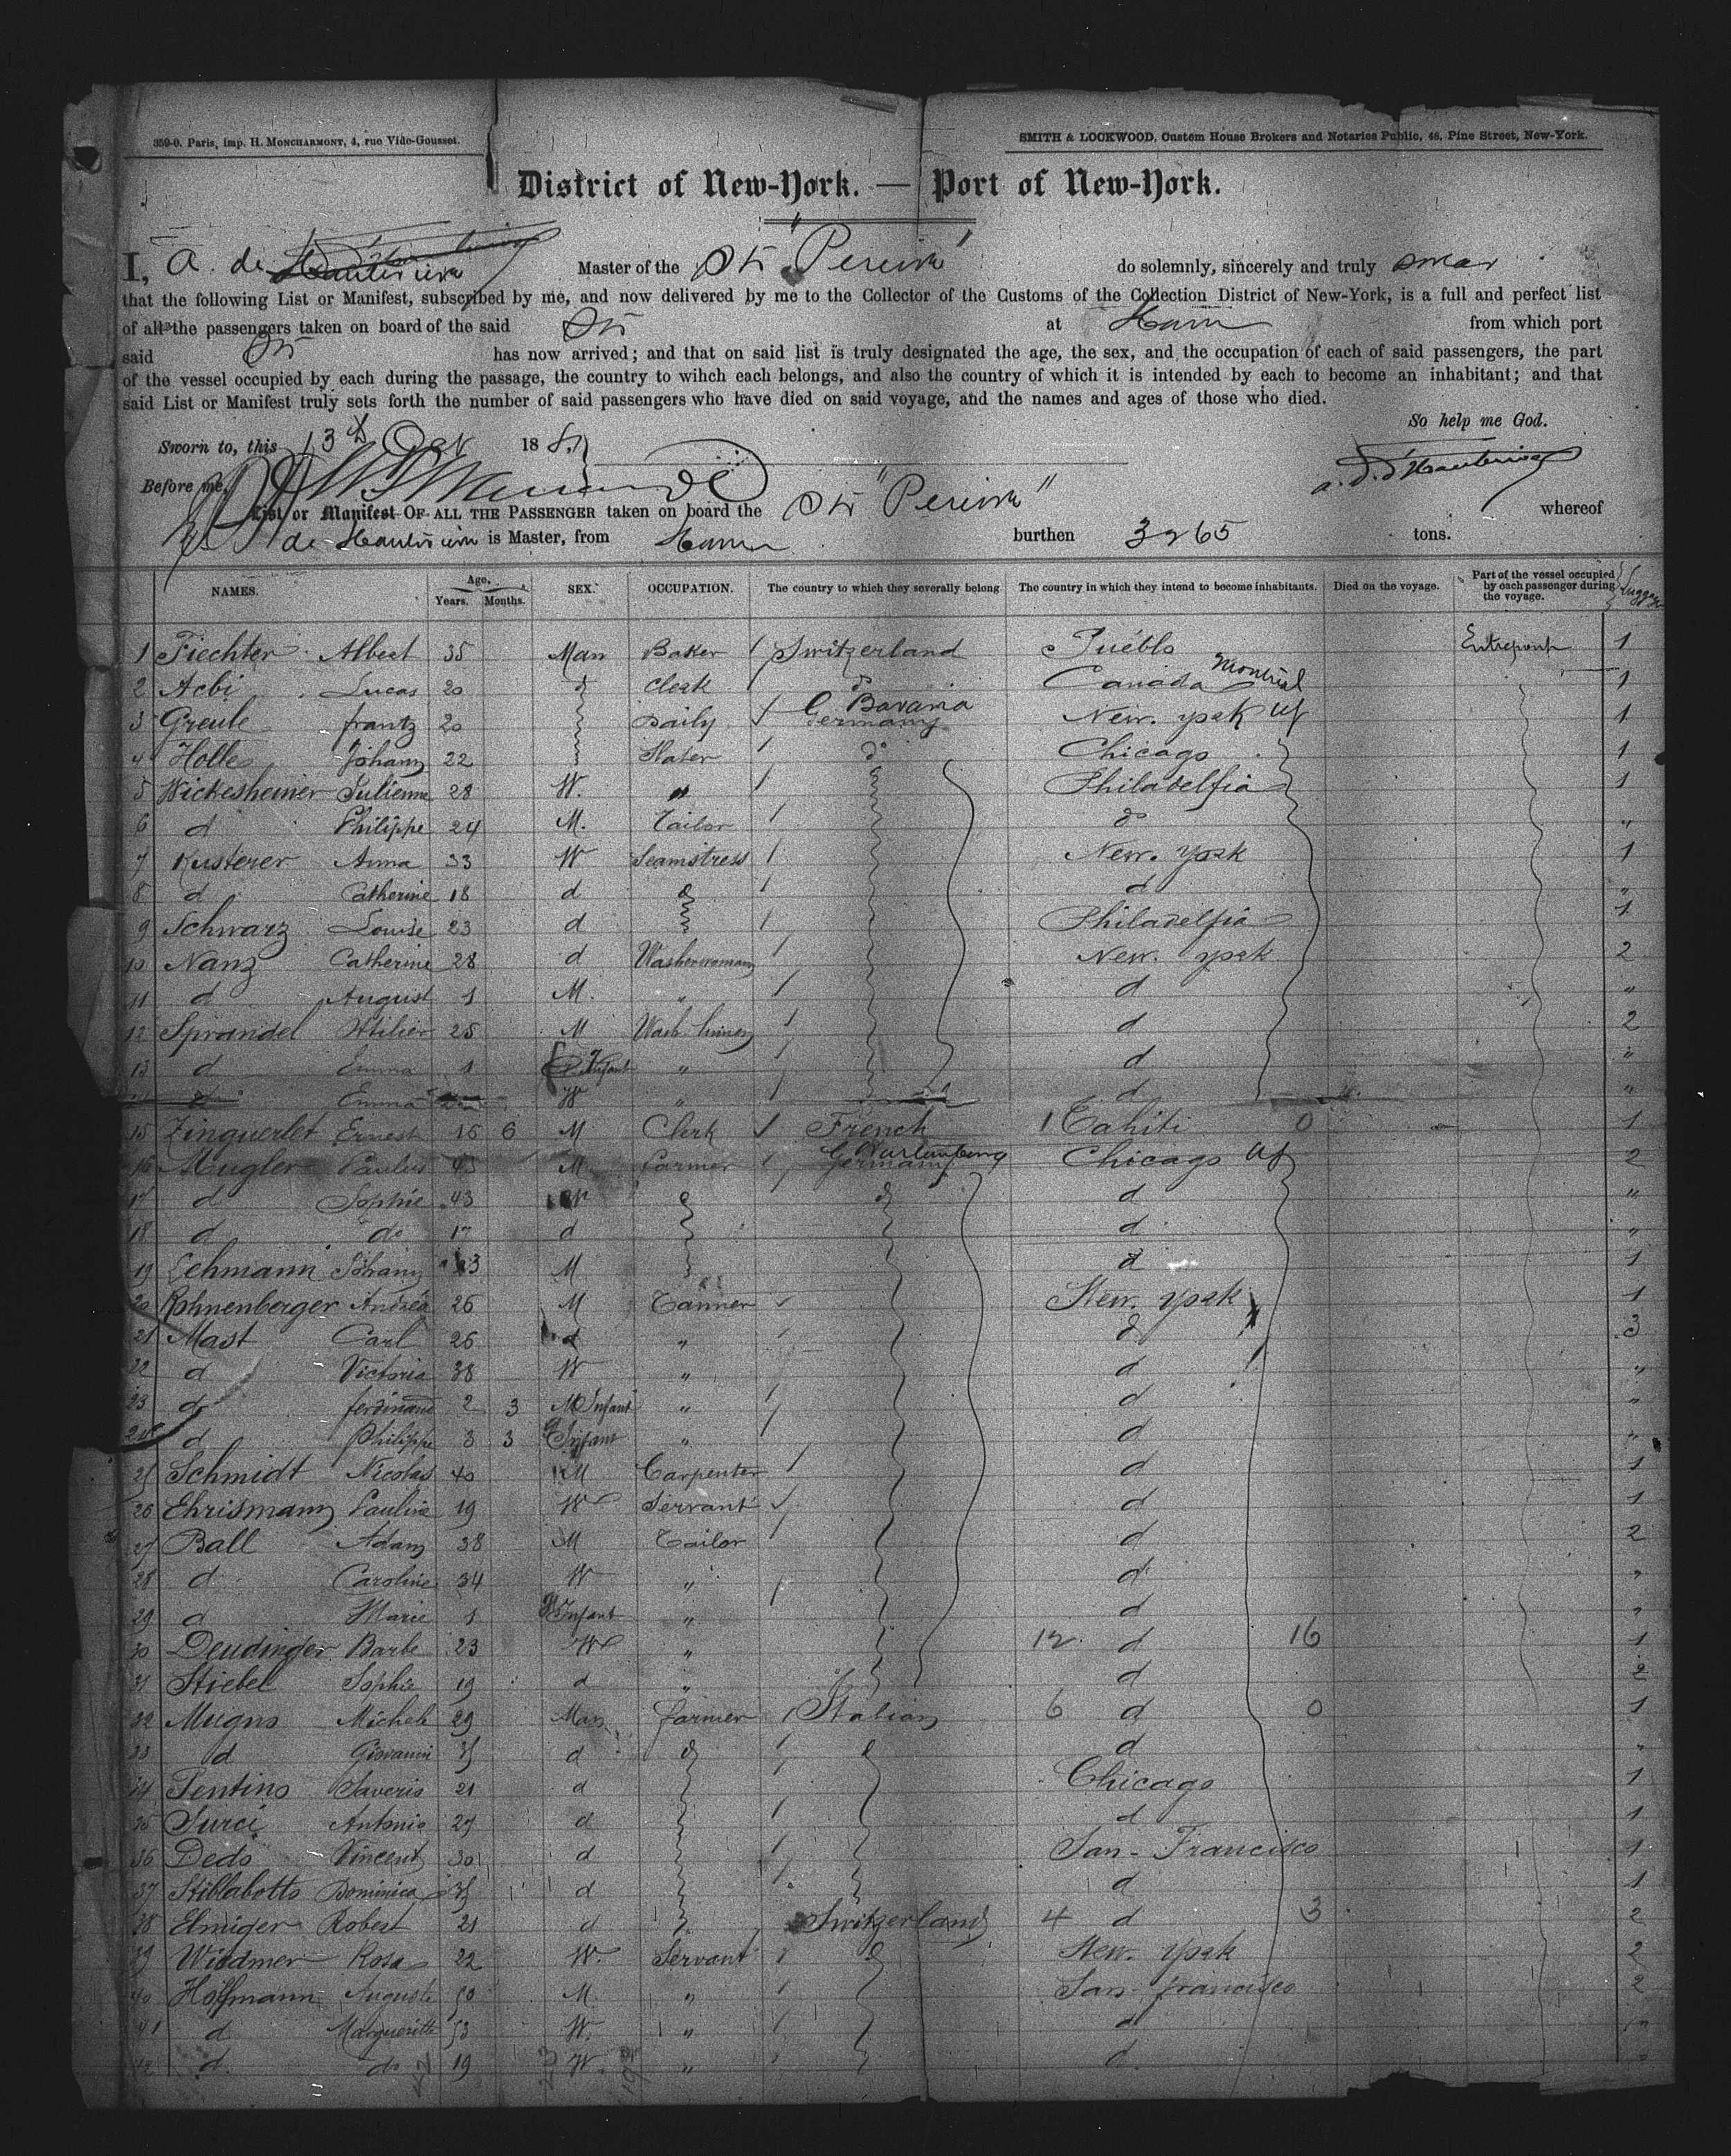 359-0. Paris, imp. H. MONCHARMONT, 4, rue Vide-Gousset.
SMITH & LOCKWOOD, Custom House Brokers and Notaries Public, 48, Pine Street, New-York.
District of New-York. — Port of New-York.
I, A. de Hauterive Master of the Str "Pereire" do solemnly, sincerely and truly swear
that the following List or Manifest, subscribed by me, and now delivered by me to the Collector of the Customs of the Collection District of New-York, is a full and perfect list
of all the passengers taken on board of the said Str at Havre from which port
said Str has now arrived; and that on said list is truly designated the age, the sex, and the occupation of each of said passengers, the part
of the vessel occupied by each during the passage, the country to wihch each belongs, and also the country of which it is intended by each to become an inhabitant; and that
said List or Manifest truly sets forth the number of said passengers who have died on said voyage, and the names and ages of those who died.
So help me God.
Sworn to, this 13th 188
Before me,
a. d. d'Hauterive
List or Manifest OF ALL THE PASSENGER taken on board the Str "Pereire" whereof
de Hauterive is Master, from Havre burthen 3265 tons.
NAMES. Age. Years. Months. SEX. OCCUPATION. The country to which they severally belong The country in which they intend to become inhabitants. Died on the voyage. Part of the vessel occupied by each passenger during the voyage. Luggage
1 Fiechter Albert 35 Man Baker Switzerland Puéblo Entrepont 1
2 Aebi Lucas 20 d Clerk do Canada Montréal 1
3 Greule frantz 20 Daily G Bavaria Germany New. york 1
4 Holle Johann 22 Slater do Chicago 1
5 Wickesheimer Julienne 28 W. " Philadelfia 1
6 d Philippe 24 M. Tailor do "
7 Kusterer Anna 33 W Seamstress New. york 1
8 d Catherine 18 d d d "
9 Schwarz Louise 23 d Philadelfia 1
10 Nanz Catherine 28 d Washerwoman New. york 2
11 d August 1 M. " d "
12 Sprandel 25 M d 2
13 d Emma 1 Infant " d "
d Emma W " d "
15 Zinguerlet Ernest 16 6 M Clerk French 1 Tahiti 0 1
16 Mugler Paulus 45 M farmer G Wurtemberg Germany Chicago 2
17 d Sophie 43 W d d d "
18 d do 17 d d "
19 Lehmann Johann 23 M d 1
20 Rohnenberger Andréa 26 M Tanner New. york 1
21 Mast Carl 26 d " d 3
22 d Victoria 38 W " d "
23 d ferdinand 2 3 M Infant " d "
24 d Philippe 3 3 Infant " d "
25 Schmidt Nicolas 40 M Carpenter d 1
26 Ehrismann Pauline 19 W Servant d 1
27 Ball Adam 38 M Tailor d 2
28 d Caroline 34 W " d "
29 d Marie 1 Infant " d "
30 Deudinger Barbe 23 W " 12 d 16 1
31 Stiebel Sophie 19 d " d 2
32 Mugno Michele 29 Man farmer Italian 6 d 0 1
33 d Giovanni 35 d d d d "
34 Tentino Saverio 21 d Chicago 1
35 Turci Antonio 27 d d 1
36 Dedo Vincent 30 d San-Francisco 1
37 Stillabotto Dominica 35 d d 1
38 Elmiger Robert 21 d Switzerland 4 d 3 2
39 Widmer Rosa 22 W. Servant d New. york 2
40 Hoffmann Auguste 50 M. " San-francisco 2
41 d Margueritte 53 W. " d "
42 d do 19 W. " d "